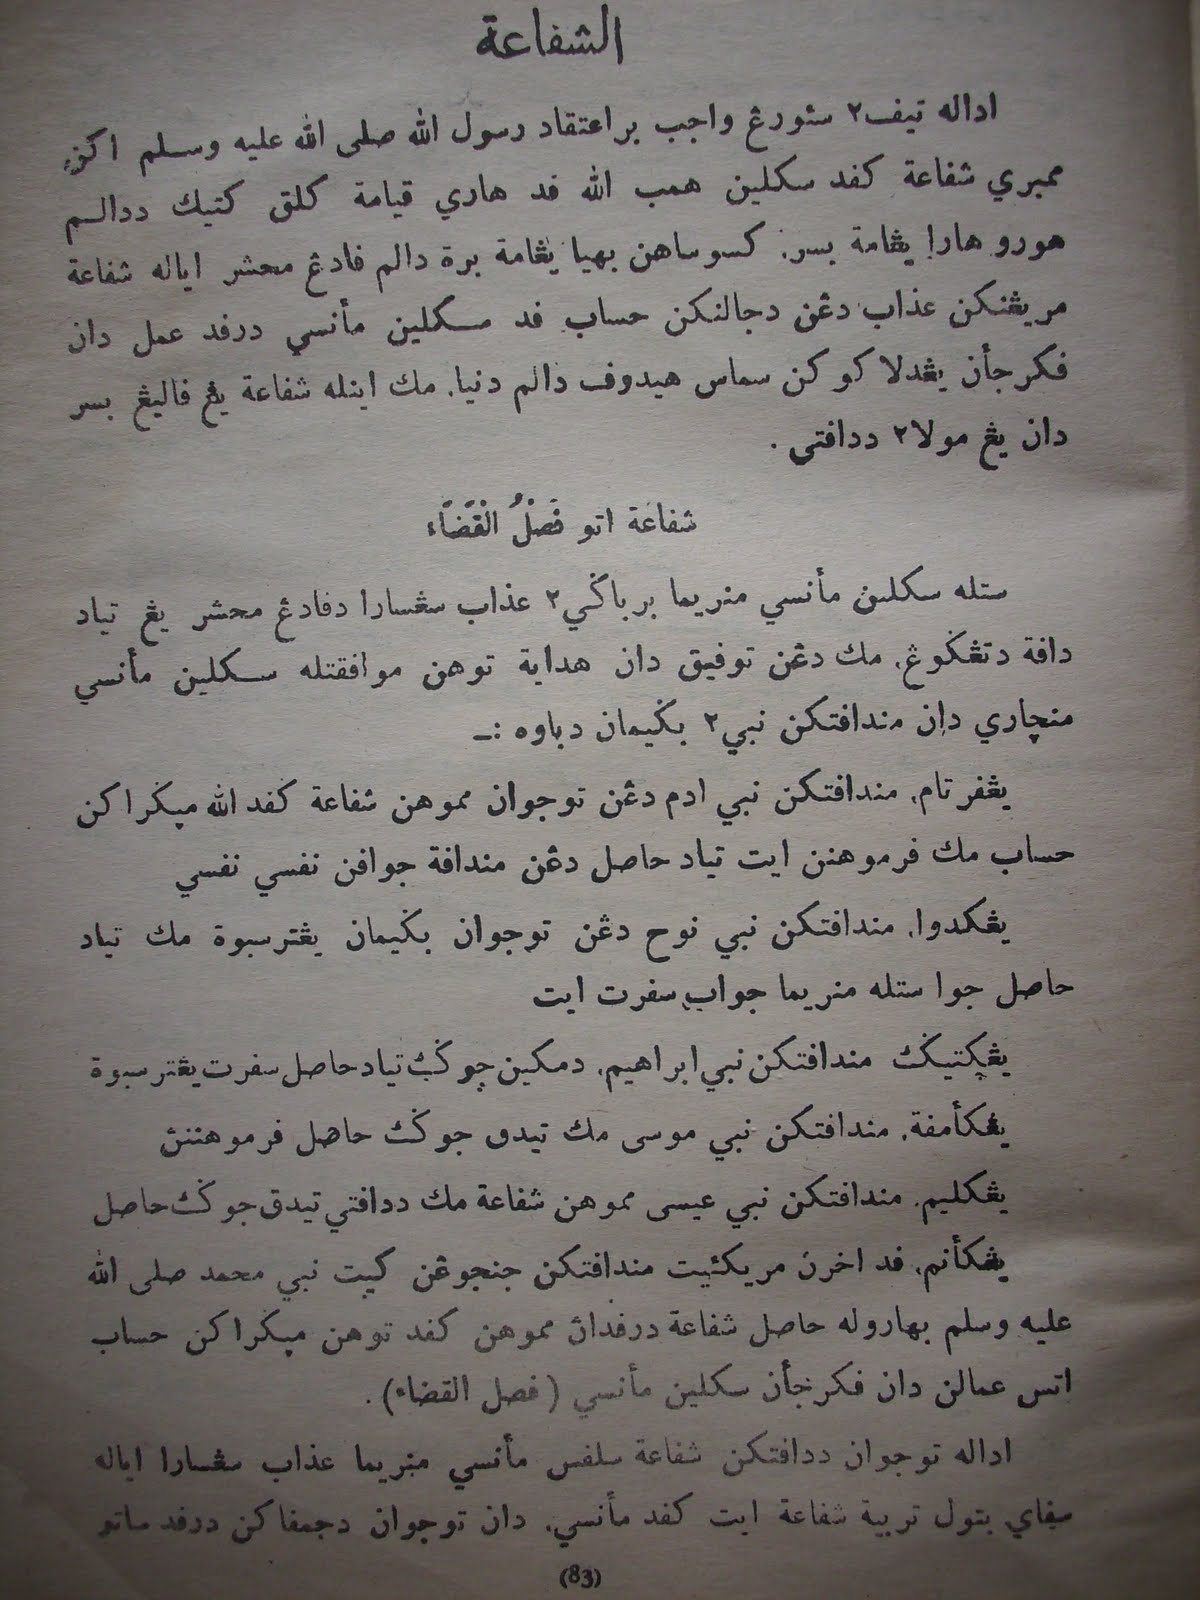 الشفاعة
اداله تيف٢ سئورڠ واجب براعتقاد رسول الله صلى الله عليه وسلم اكن
ممبري شفاعة كفد سكلين همب الله فد هاري قيامة كلق كتيك ددالم
هورو هارا يڠامة بسر، كسوساهن بهيا يڠامة برة دالم فادڠ محشر اياله شفاعة
مريڠنكن عذاب دڠن دجالنكن حساب فد سكلين مأنسي درفد عمل دان
فكرجأن يڠدلاكوكن سماس هيدوف دالم دنيا، مك اينله شفاعة يڠ فاليڠ بسر
دان يڠ مولا٢ ددافتي .
شفاعة اتو فَصْلُ الْقَضَاء
ستله سكلين مأنسي منريما برباݢي٢ عذاب سڠسارا دفادڠ محشر يڠ تياد
دافة دتڠݢوڠ، مك دڠن توفيق دان هداية توهن موافقتله سكلين مأنسي
منچاري دان مندافتكن نبي٢ بݢيمان دباوه :ـ
يڠفرتام، مندافتكن نبي ادم دڠن توجوان مموهن شفاعة كفد الله مپݢراكن
حساب مك فرموهنن ايت تياد حاصل دڠن مندافة جوافن نفسي نفسي
يڠكدوا، مندافتكن نبي نوح دڠن توجوان بݢيمان يڠترسبوة مك تياد
حاصل جوا ستله منريما جواب سفرت ايت
يڠكتيݢ مندافتكن نبي ابراهيم، دمكين جوݢ تياد حاصل سفرت يڠترسبوة
يڠكأمفة، مندافتكن نبي موسى مك تيدق جوݢ حاصل فرموهننن
يڠكليم، مندافتكن نبي عيسى مموهن شفاعة مك ددافتي تيدق جوݢ حاصل
يڠكأنم، فد اخرن مريكئيت مندافتكن جنجوڠن كيت نبي محمد صلى الله
عليه وسلم بهاروله حاصل شفاعة درفدان مموهن كفد توهن مپݢراكن حساب
اتس عمالن دان فكرجأن سكلين مأنسي (فصل القضاء).
اداله توجوان ددافتكن شفاعة سلفس مأنسي منريما عذاب سڠسارا اياله
سفاي بتول تربية شفاعة ايت كفد مأنسي، دان توجوان دجمفاكن درفد ساتو
(83)